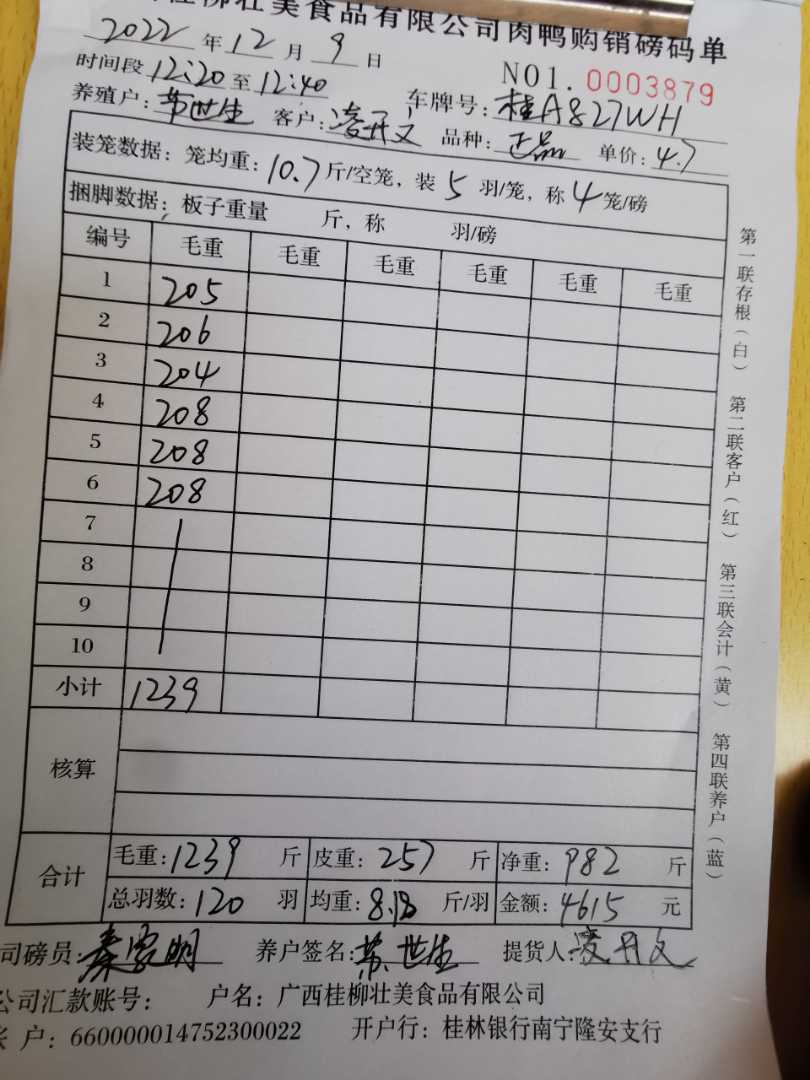 桂柳壮美食品有限公司肉鸭购销磅码单
2022年12月9日
NO1. 0003879
时间段12:20至12:40
车牌号:桂A827WH
养殖户:苏世生 客户:凌开文 品种:正品 单价:4.7
装笼数据:笼均重:10.7斤/空笼,装5羽/笼,称4笼/磅
捆脚数据:板子重量 斤,称 羽/磅
编号 毛重 毛重 毛重 毛重 毛重 毛重
1 205
2 206
3 204
4 208
5 208
6 208
7
8
9
10
小计 1239
核算
合计 毛重:1239斤 皮重:257斤 净重:982斤
总羽数:120羽 均重:8.18斤/羽 金额:4615元
司磅员:秦家明 养户签名:苏世生 提货人:凌开文
公司汇款账号: 户名:广西桂柳壮美食品有限公司
账户:660000014752300022 开户行:桂林银行南宁隆安支行
第一联存根(白) 第二联客户(红) 第三联会计(黄) 第四联养户(蓝)